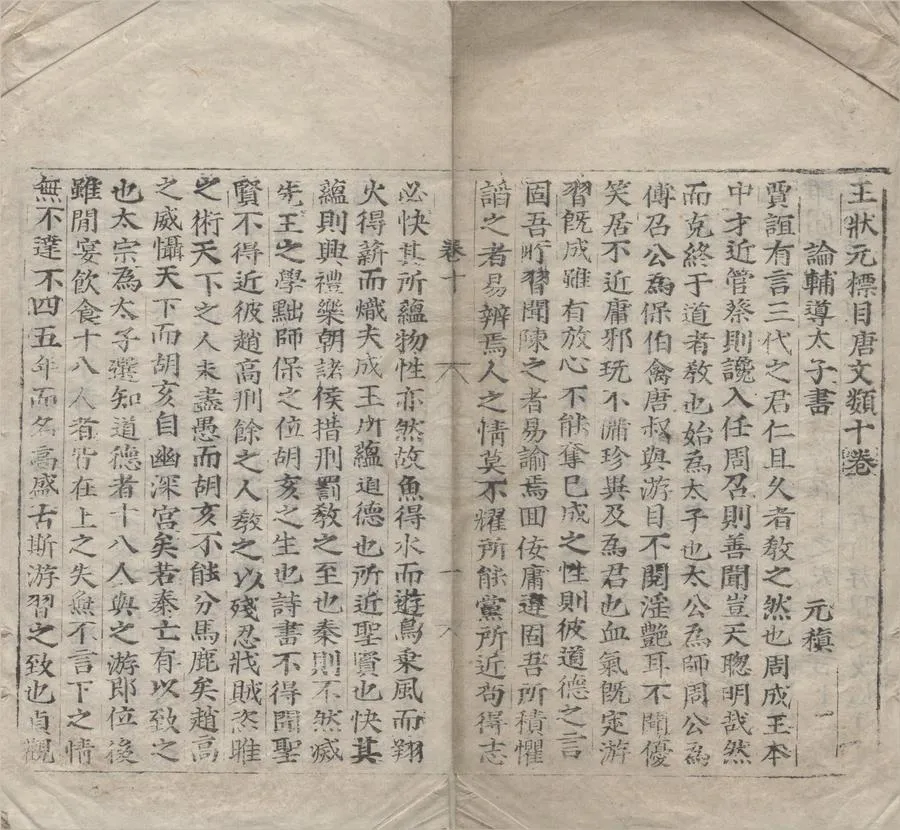 王狀元標目唐文類十卷
論輔導太子書 元稹
賈誼有言三代之君仁且久者教之然也周成王本
中才近管蔡則讒入任周召則善聞豈天聦明哉然
而克終于道者教也始為太子也太公為師周公為
傅召公為保伯禽唐叔與游目不閱淫艷耳不聞優
笑居不近庸邪玩不備珍異及為君也血氣既定游
習既成雖有放心不能奪已成之性則彼道德之言
固吾所習聞陳之者易諭焉囬佞庸違固吾所積懼
謟之者易辨焉人之情莫不耀所能黨所近苟得志
卷十
一
必快其所蘊物性亦然故魚得水而遊鳥乗風而翔
火得薪而熾夫成王所蘊道德也所近聖賢也快其
蘊則興禮樂朝諸侯措刑罰教之至也秦則不然滅
先王之學黜師保之位胡亥之生也詩書不得聞聖
賢不得近彼趙高刑餘之人教之以殘忍戕賊恣睢
之術天下之人未盡愚而胡亥不能分馬鹿矣趙高
之威懾天下而胡亥自幽深宮矣若秦亡有以致之
也太宗為太子選知道德者十八人與之游即位後
雖閒宴飲食十八人者皆在上之失無不言下之情
無不達不四五年而名高盛古斯游習之致也貞觀